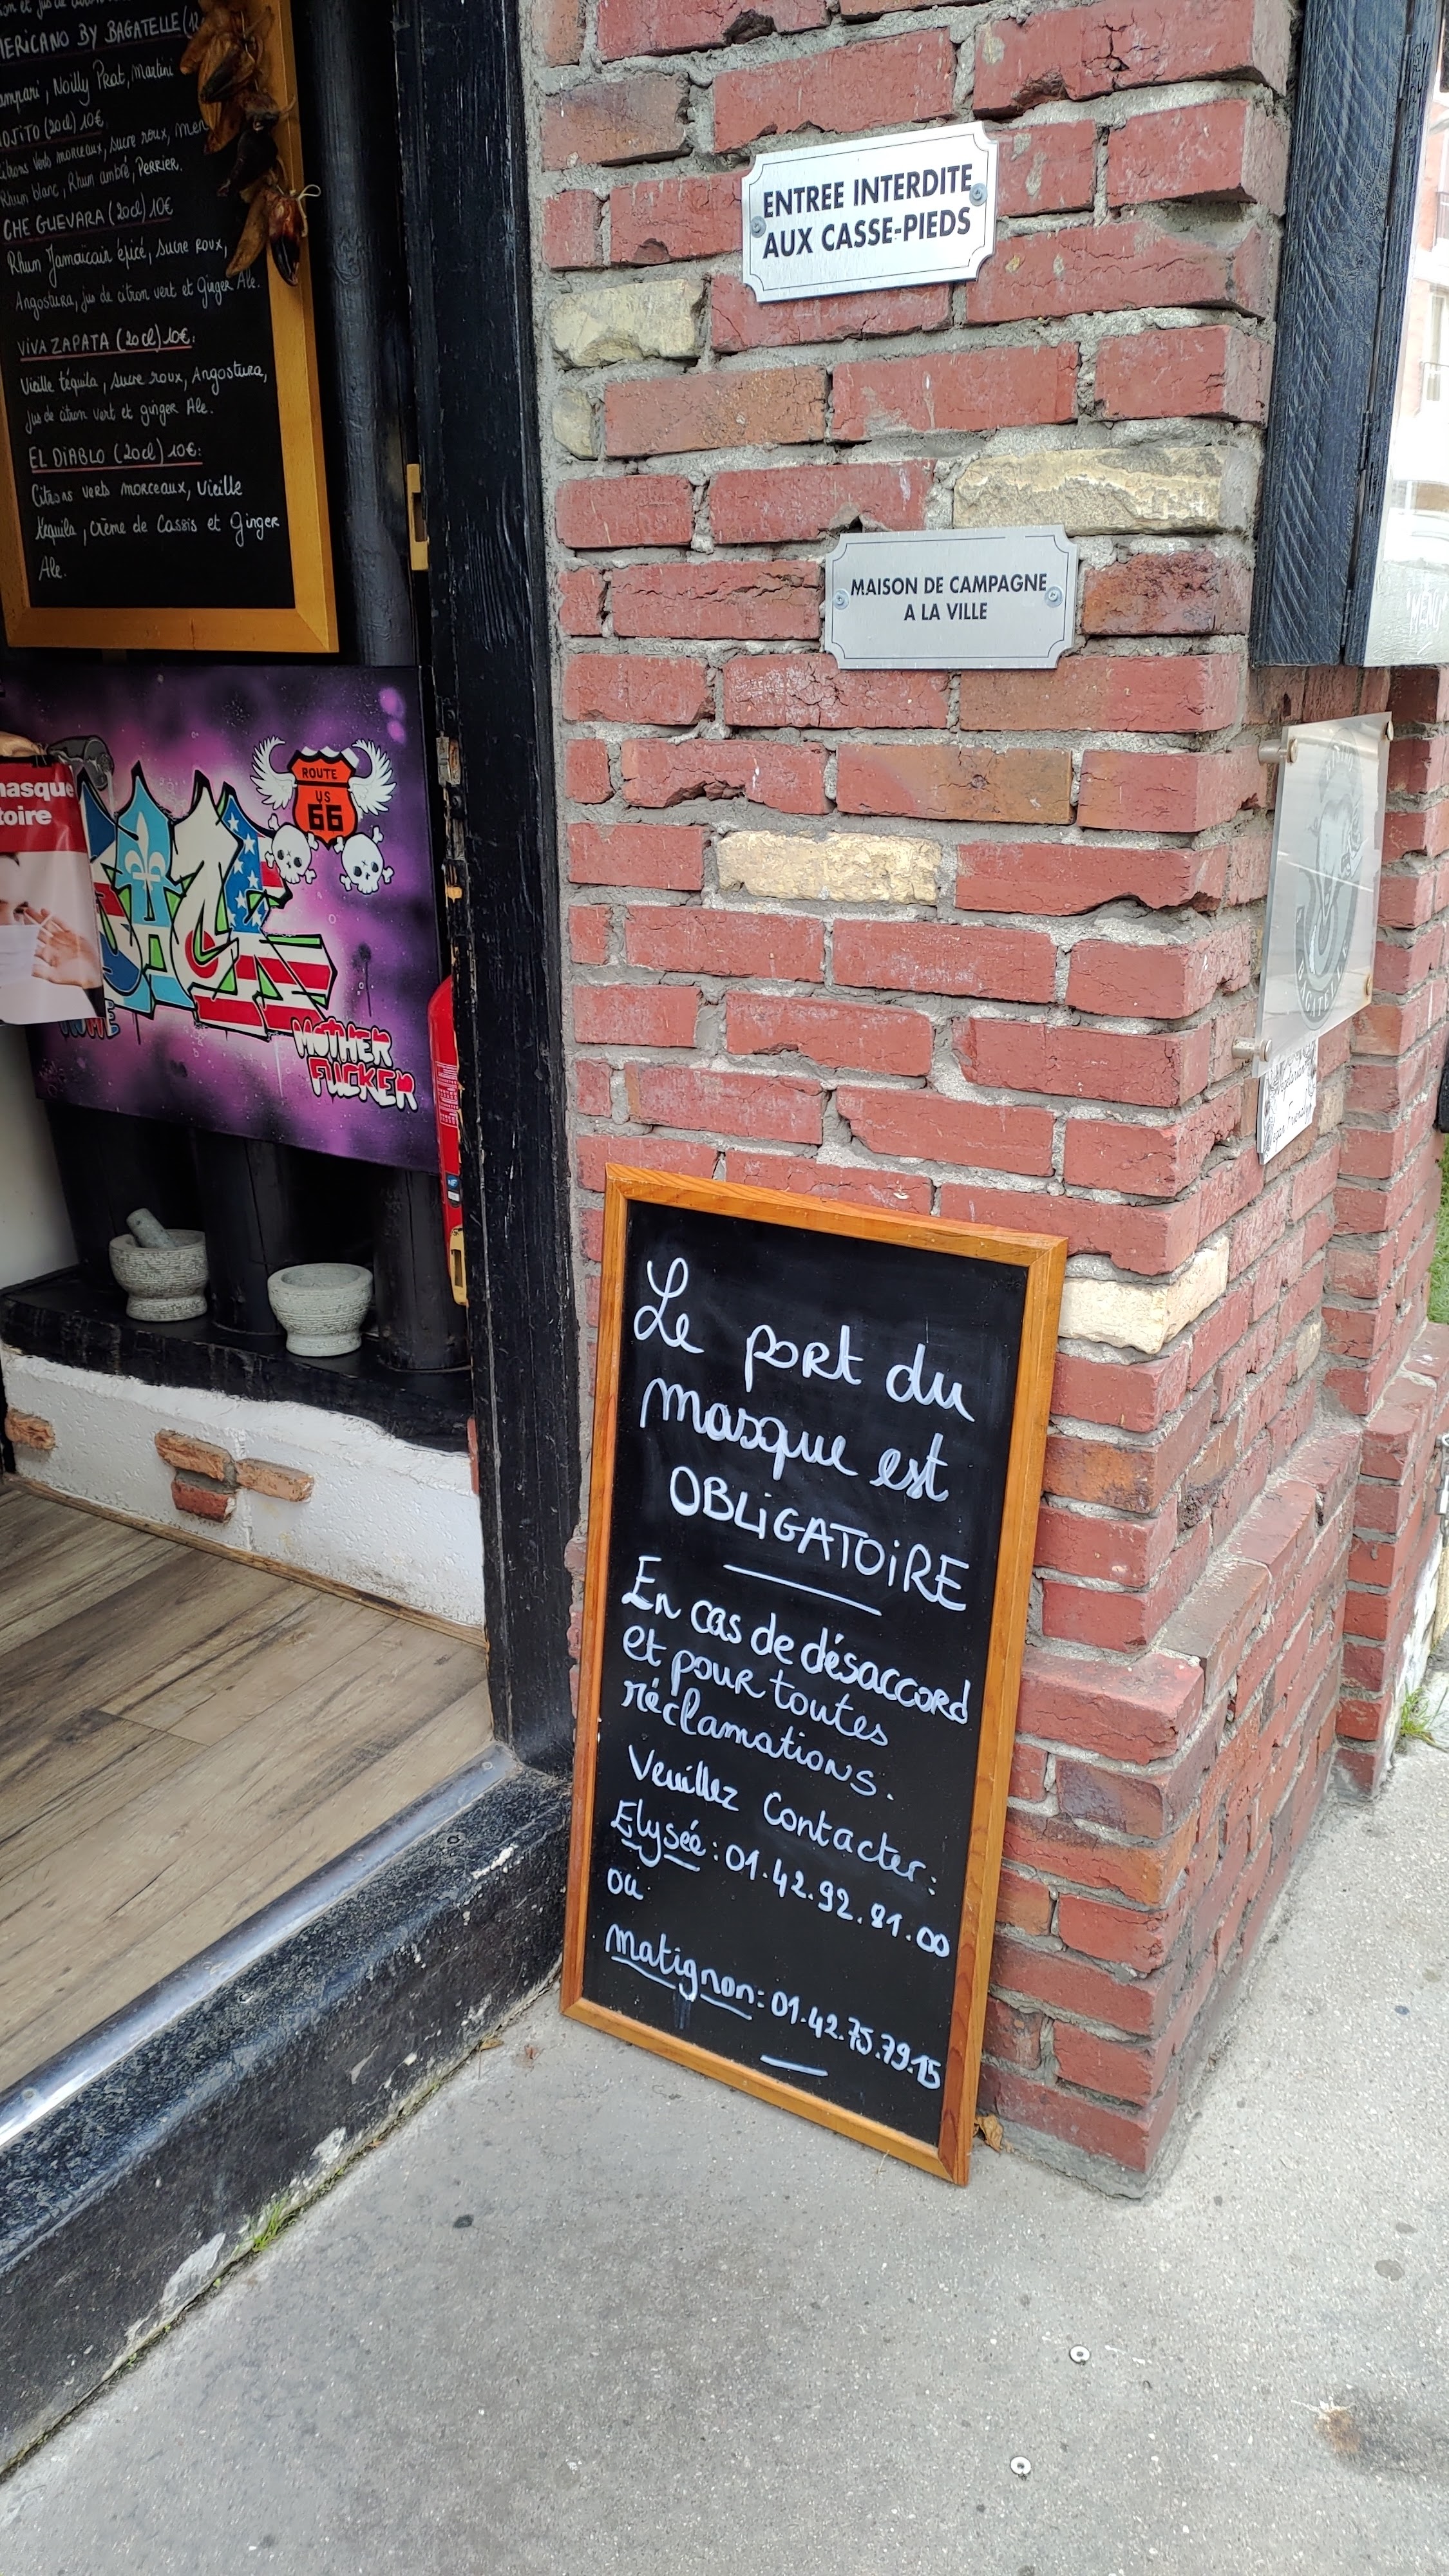 ENTREE INTERDITE
AUX CASSE-PIEDS
MAISON DE CAMPAGNE
A LA VILLE
BY BAGATELLE
Noilly Prat, Martini
(20cl) 10€
verts morceaux, sucre roux,
Rhum blanc, Rhum ambré, PERRIER.
CHE GUEVARA (20cl) 10€
Rhum Jamaïcain épicé, sucre roux,
Angostura, jus de citron vert et Ginger Ale.
ViVA ZAPATA (20cl) 10€:
Vieille téquila, sucre roux, Angostura,
jus de citron vert et ginger Ale.
EL DiABLO (20cl) 10€:
Citrons verts morceaux, Vieille
téquila, crème de Cassis et Ginger
Ale.
ROUTE
US
66
MOTHER
FUCKER
Le port du
masque est
OBLiGATOiRE
En cas de désaccord
et pour toutes
réclamations.
Veuillez Contacter:
Elysée: 01.42.92.81.00
ou
Matignon: 01.42.75.79.15